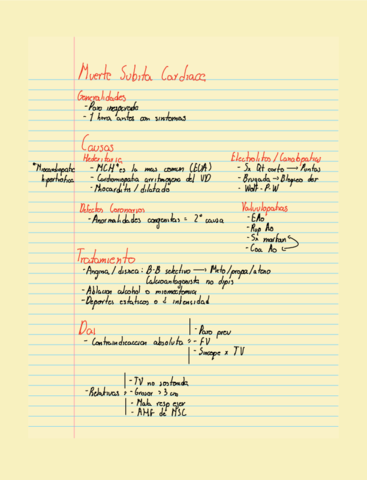 Muerte Subita Cardiaca
Generalidades
- Paro inesperado
- 1 hora antes con sintomas
Causas
Hederitaria
*Miocardiopatia hipertrofica
- MCH* es la mas comun (EUA)
- Cardiomiopatia arritmogena del VD
- Miocarditis / dilatada
Electrolitos / Canalopatias
- Sx Qt corto → Puntas
- Brugada → Bloqueo der
- Wolff-P-W
Defectos Coronarios
- Anormalidades congenitas = 2° causa
Valvulopatias
- EAo
- Rup Ao
- Sx marfan
- Coa Ao
Tratamiento
- Angina / disnea: B-B selectivo → Meto/propa/ateno
Calcioantagonista no dipis
- Ablacion alcohol o miomectomia
- Deportes estaticos o ↓ intensidad
Dai
- Contraindicacion absoluta
- Paro prev
- FV
- Sincope x TV
- Relativas
- TV no sostenida
- Grosor > 3 cm
- Mala resp ejer
- AHF de MSC